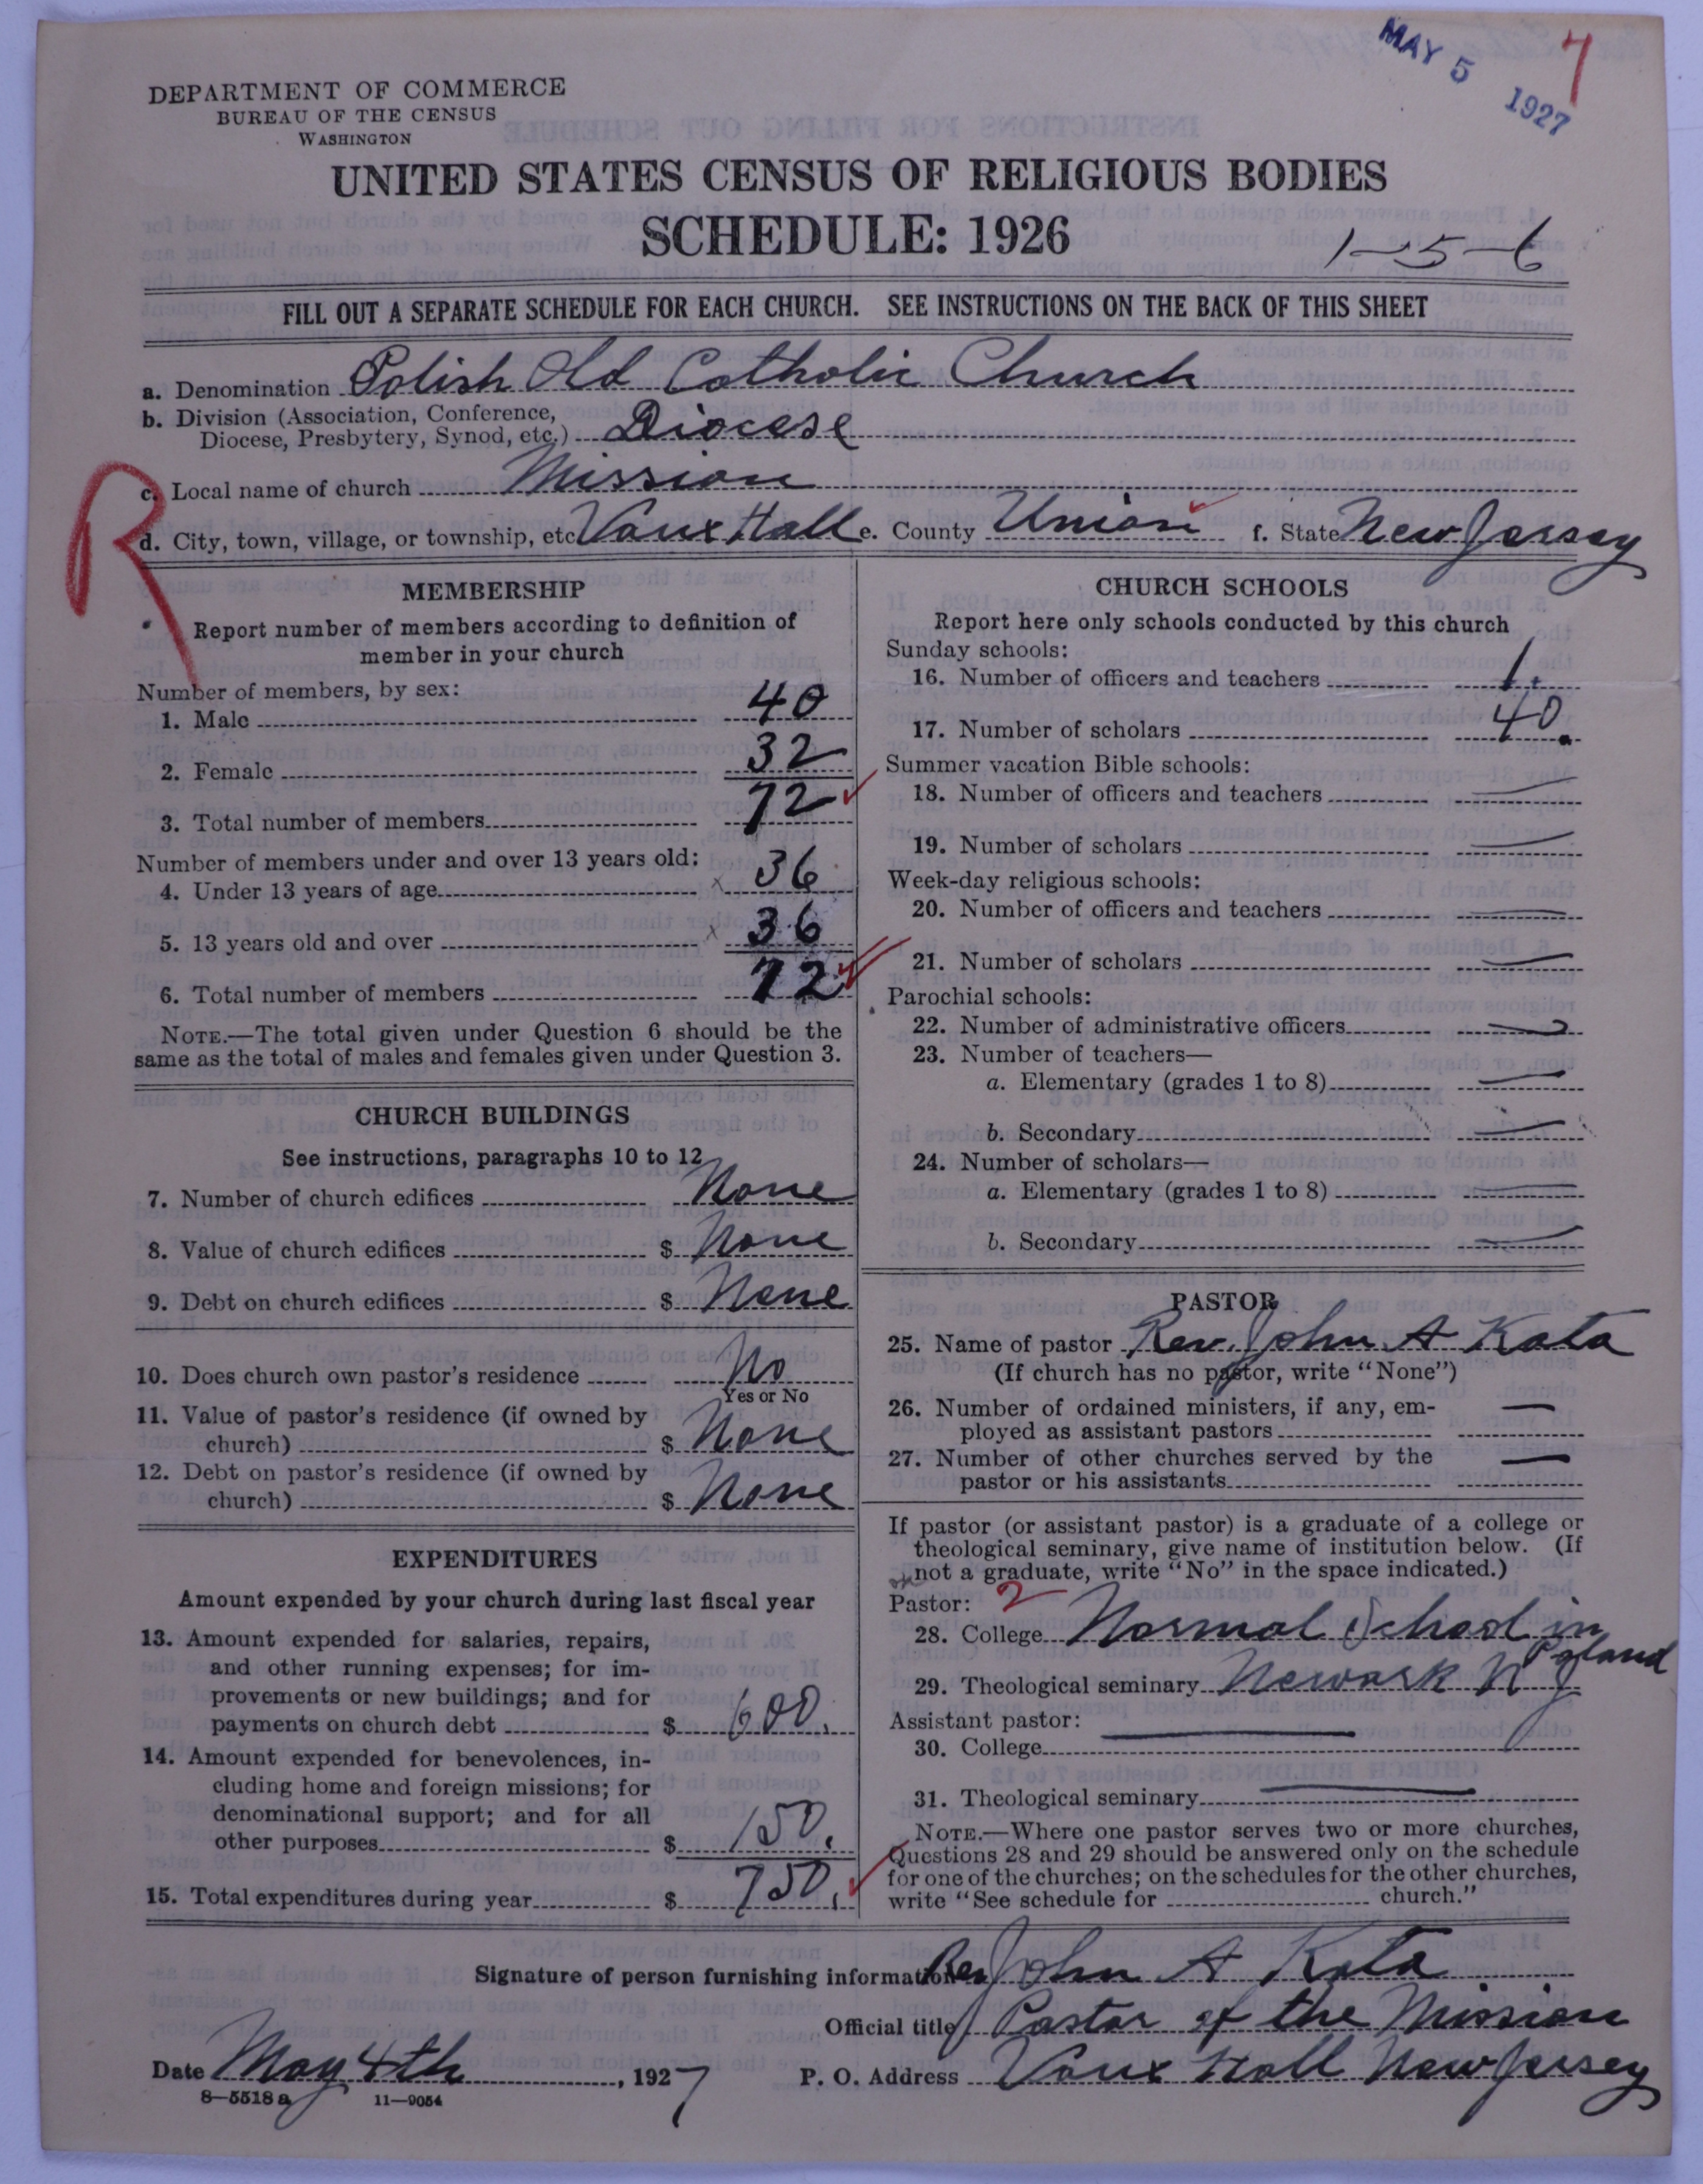 MAY 5 1927
7
DEPARTMENT OF COMMERCE
BUREAU OF THE CENSUS
WASHINGTON
UNITED STATES CENSUS OF RELIGIOUS BODIES
SCHEDULE: 1926
1-5-6
FILL OUT A SEPARATE SCHEDULE FOR EACH CHURCH. SEE INSTRUCTIONS ON THE BACK OF THIS SHEET
a. Denomination Polish Old Catholic Church
b. Division (Association, Conference,
Diocese, Presbytery, Synod, etc.) Diocese
R
c. Local name of church Mission
d. City, town, village, or township, etc Vaux Hall e. County Union f. State New Jersey
MEMBERSHIP
Report number of members according to definition of
member in your church
Number of members, by sex:
1. Male 40
2. Female 32
3. Total number of members 72
Number of members under and over 13 years old:
4. Under 13 years of age x 36
5. 13 years old and over x 36
6. Total number of members 72
NOTE.—The total given under Question 6 should be the
same as the total of males and females given under Question 3.
CHURCH BUILDINGS
See instructions, paragraphs 10 to 12
7. Number of church edifices None
8. Value of church edifices $ None
9. Debt on church edifices $ None
10. Does church own pastor's residence No
Yes or No
11. Value of pastor's residence (if owned by
church) $ None
12. Debt on pastor's residence (if owned by
church) $ None
EXPENDITURES
Amount expended by your church during last fiscal year
13. Amount expended for salaries, repairs,
and other running expenses; for im-
provements or new buildings; and for
payments on church debt $ 600.
14. Amount expended for benevolences, in-
cluding home and foreign missions; for
denominational support; and for all
other purposes $ 150.
15. Total expenditures during year $ 750.
CHURCH SCHOOLS
Report here only schools conducted by this church
Sunday schools:
16. Number of officers and teachers 1.
17. Number of scholars 40.
Summer vacation Bible schools:
18. Number of officers and teachers —
19. Number of scholars —
Week-day religious schools:
20. Number of officers and teachers —
21. Number of scholars —
Parochial schools:
22. Number of administrative officers —
23. Number of teachers—
a. Elementary (grades 1 to 8) —
b. Secondary —
24. Number of scholars—
a. Elementary (grades 1 to 8) —
b. Secondary —
PASTOR
25. Name of pastor Rev. John A Kota
(If church has no pastor, write "None")
26. Number of ordained ministers, if any, em-
ployed as assistant pastors —
27. Number of other churches served by the
pastor or his assistants —
If pastor (or assistant pastor) is a graduate of a college or
theological seminary, give name of institution below. (If
not a graduate, write "No" in the space indicated.)
Pastor: 2
28. College Normal School in Poland
29. Theological seminary Newark N J
Assistant pastor:
30. College —
31. Theological seminary —
NOTE.—Where one pastor serves two or more churches,
Questions 28 and 29 should be answered only on the schedule
for one of the churches; on the schedules for the other churches,
write "See schedule for church."
Signature of person furnishing information Rev John A Kota
Official title Pastor of the Mission
Date May 4th, 1927 P. O. Address Vaux Hall New Jersey
8—5518 a 11—9054